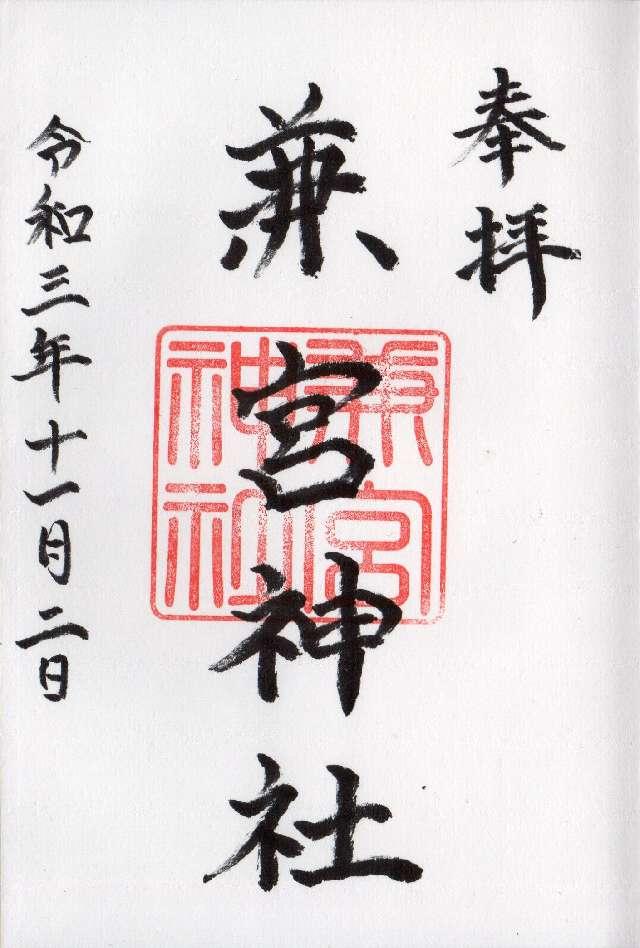 奉拝
兼宮神社
兼宮神社
令和三年十一月二日